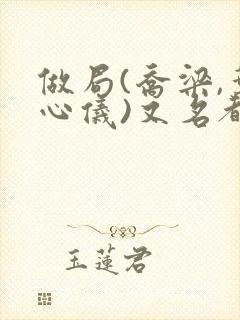 做局(喬梁,葉
心儀)又名
玉蓮君